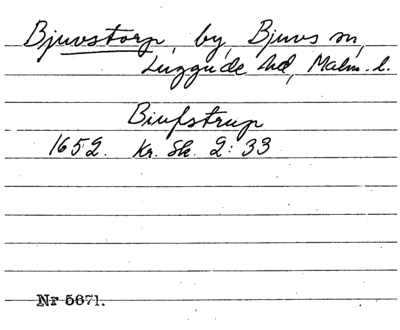 Bjuvstorp, by, Bjuvs sn,
Luggude hd, Malm. l.
Biufstrup
1652. Kr. Sk. 2:33
Nr 5671.